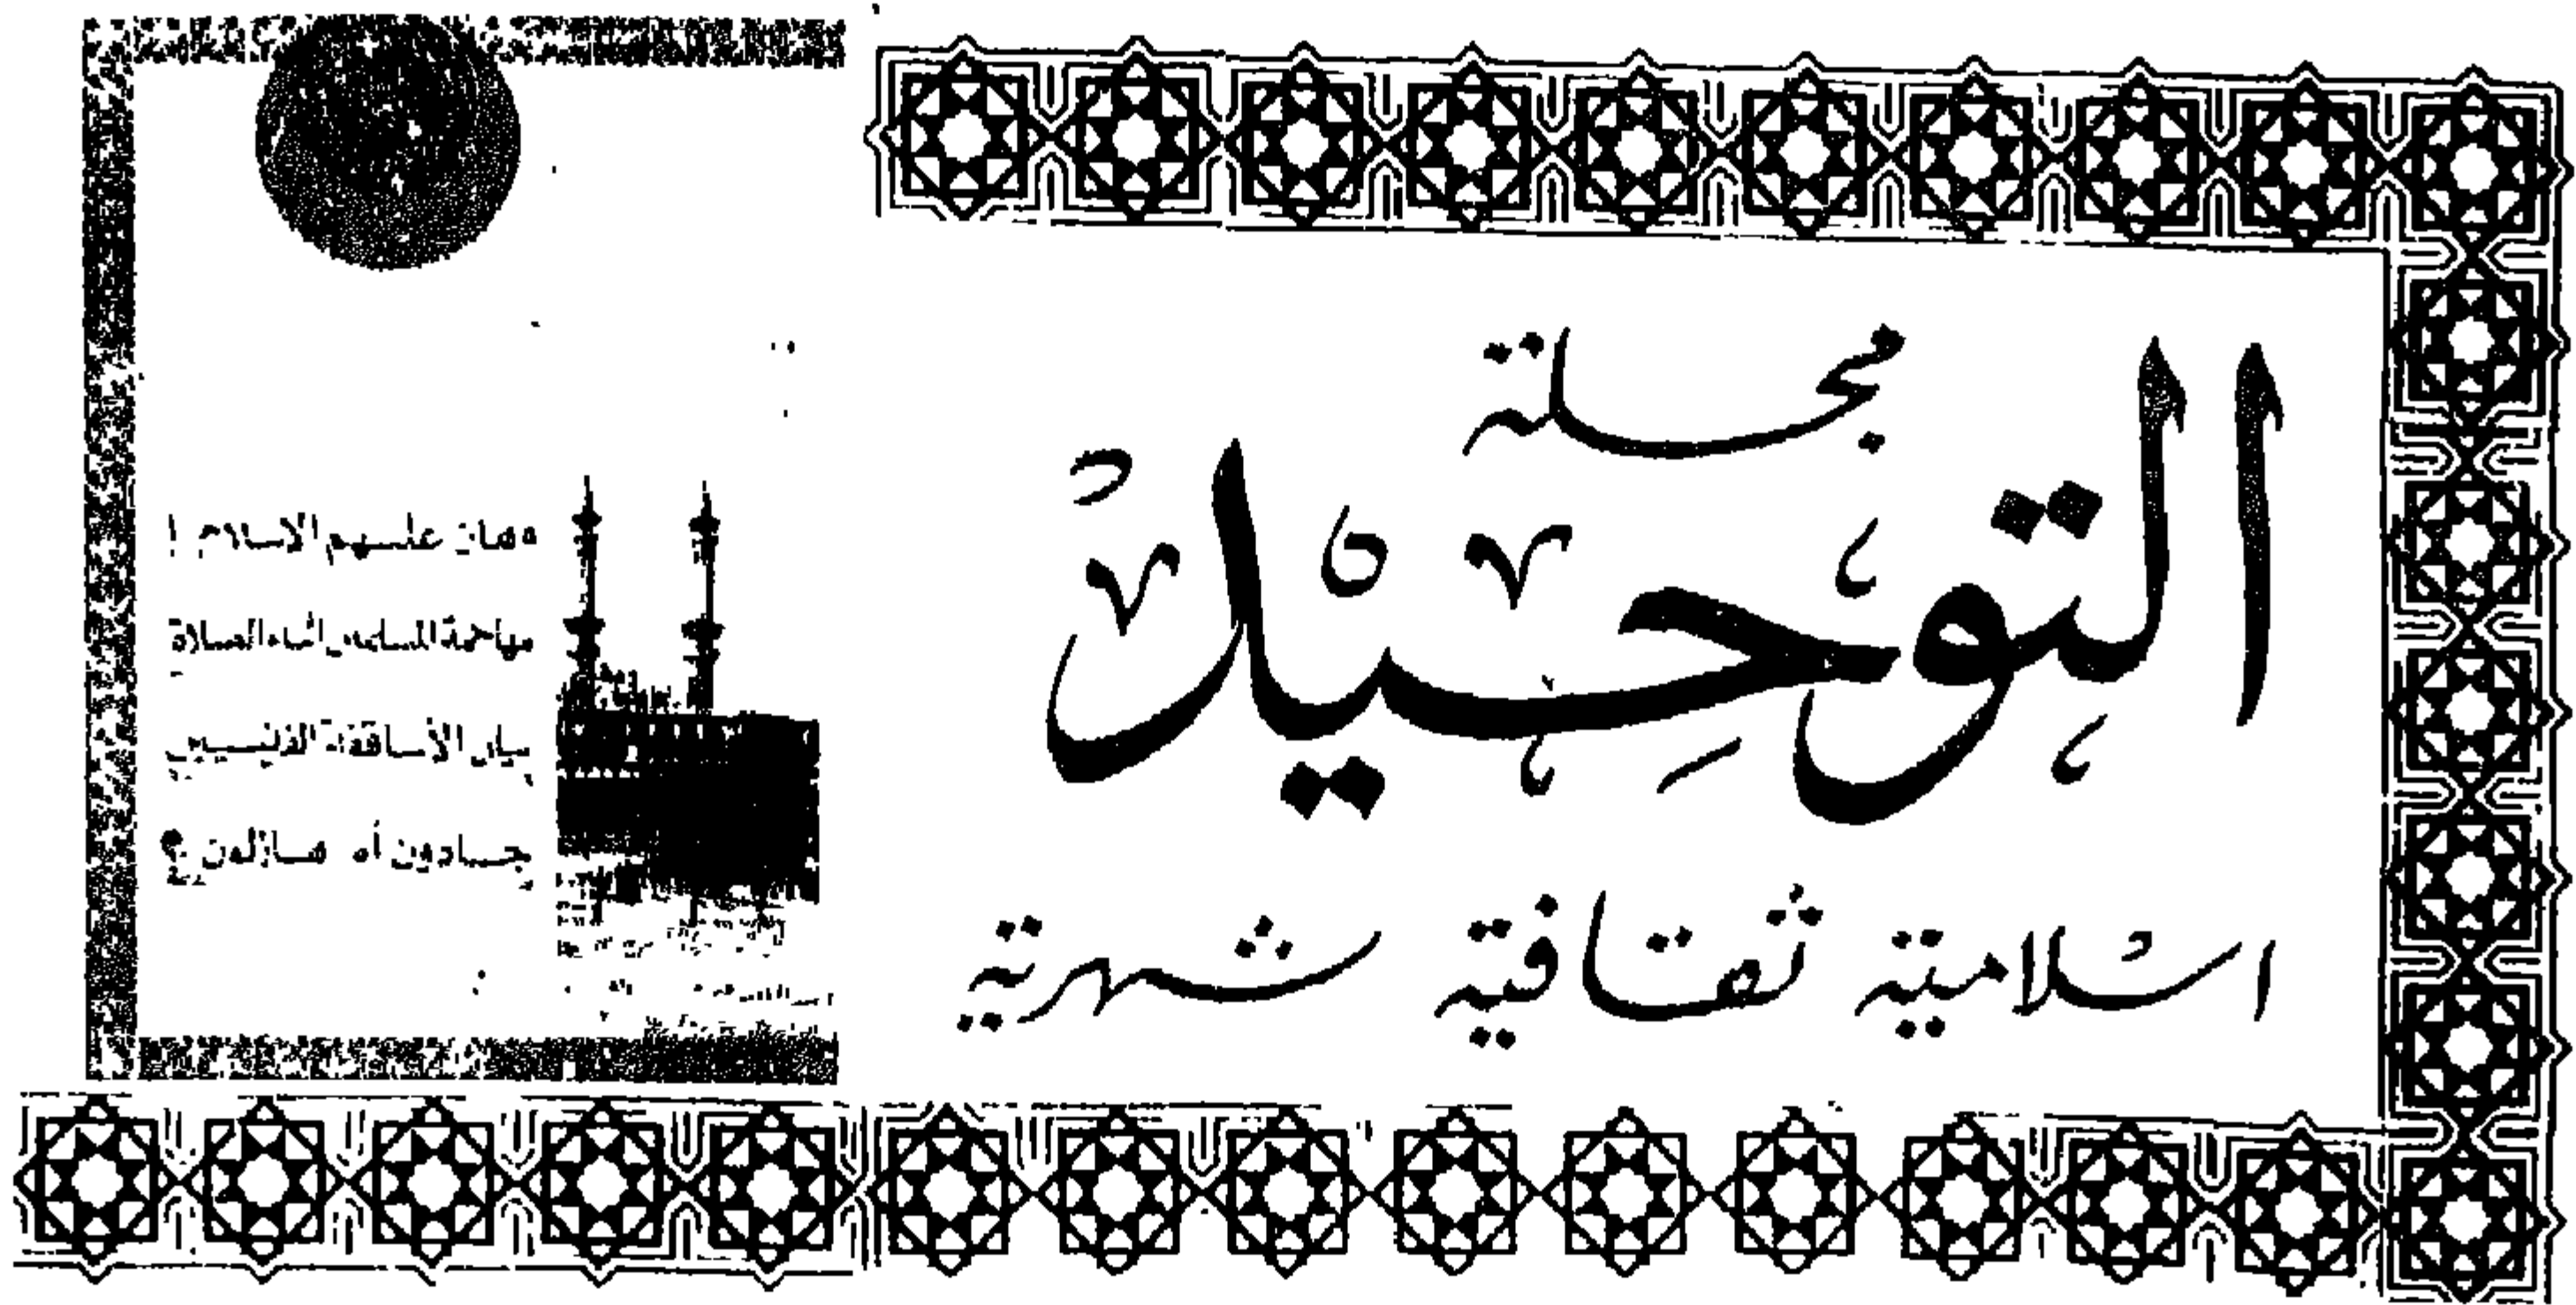 مجلة
التوحيد
اسلامية ثقافية شهرية
هان عليهم الاسلام !
مهاجمة المسلمين أثناء الصلاة
بيان الأساقفة
جادون أم هازلون ؟